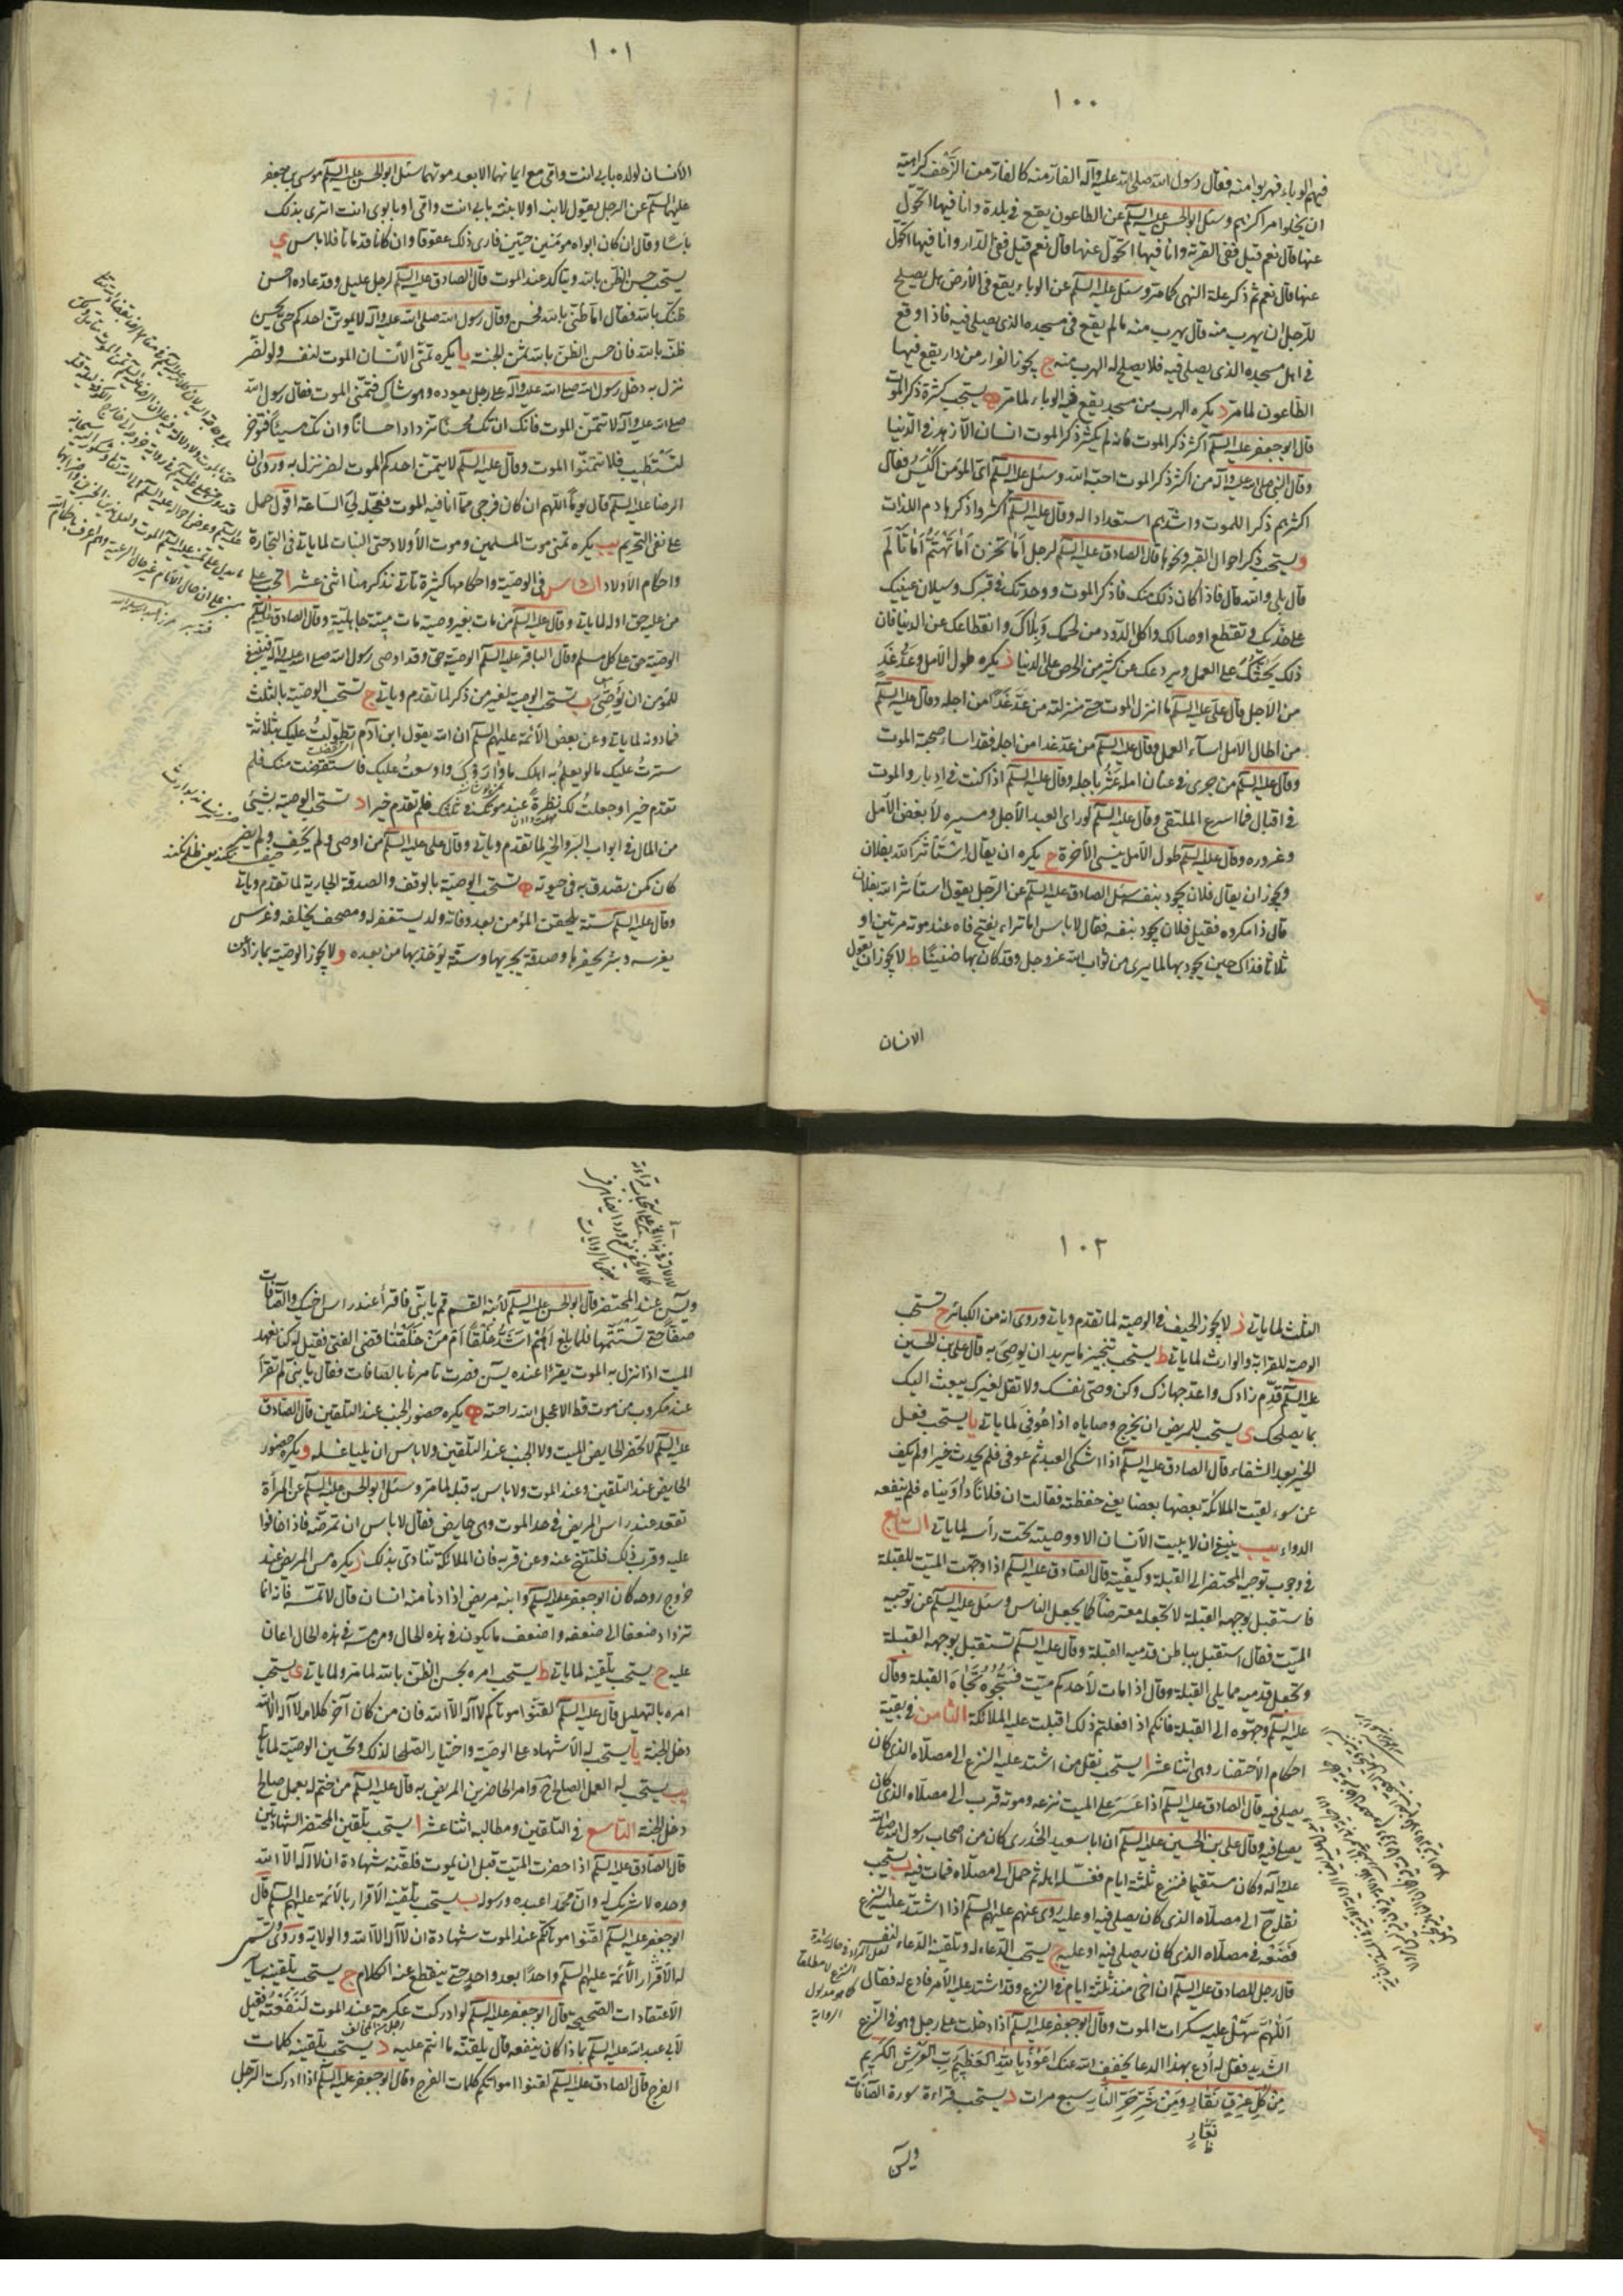 ١٠٠
فيهم الوباء فهربوا منه فقال رسول الله صلى الله عليه وآله الفار منه كالفار من الزحف كراهية
ان يخلوا مراكزهم وسئل ابو الحسن عليه السلم عن الطاعون يقع في بلدة وانا فيها اتحول
عنها قال نعم قيل ففي القرية وانا فيها اتحول عنها قال نعم قيل ففي الدار وانا فيها اتحول
عنها قال نعم ثم ذكر علة النهي كما مر وسئل عليه السلم عن الوباء يقع في الأرض هل يصلح
للرجل ان يهرب منه قال يهرب منه ما لم يقع في مسجده الذي يصلي فيه فاذا وقع
في اهل مسجده الذي يصلي فيه فلا يصلح له الهرب منه ج يجوز الفرار من دار يقع فيها
الطاعون لما مر د يكره الهرب من مسجد يقع فيه الوباء لما مر ه يستحب كثرة ذكر الموت
قال ابو جعفر عليه السلم اكثر ذكر الموت فانه لم يكثر ذكر الموت انسان الا زهد في الدنيا
وقال النبي صلى الله عليه وآله من اكثر ذكر الموت احبه الله وسئل عليه السلم اي المؤمن اكيس فقال
اكثرهم ذكرا للموت واشدهم استعدادا له وقال عليه السلم اكثروا ذكر هادم اللذات
و يستحب ذكر احوال القبر ونحوها قال الصادق عليه السلم لرجل اما تحزن اما تهتم اما تألم
قال بلى والله قال فاذا كان ذلك منك فاذكر الموت ووحدتك في قبرك وسيلان عينيك
على خديك وتقطع اوصالك واكل الدود من لحمك وبلاك وانقطاعك عن الدنيا فان
ذلك يحثك على العمل ويردعك عن كثير من الحرص على الدنيا ز يكره طول الأمل وعد غد
من الأجل قال علي عليه السلم ما انزل الموت حق منزلته من عد غدا من اجله وقال عليه السلم
من اطال الامل اساء العمل وقال عليه السلم من عد غدا من اجله فقد اساء صحبة الموت
وقال عليه السلم من جرى في عنان امله عثر باجله وقال عليه السلم اذا كنت في ادبار والموت
في اقبال فما اسرع الملتقى وقال عليه السلم لو راى العبد الأجل ومسيره لأبغض الأمل
وغروره وقال عليه السلم طول الأمل ينسي الآخرة ح يكره ان يقال استأثر الله بفلان
ويجوز ان يقال فلان يجود بنفسه سئل الصادق عليه السلم عن الرجل يقول استأثر الله بفلان
قال ذا مكروه فقيل فلان يجود بنفسه فقال لا باس اما تراه يفتح فاه عند موته مرتين او
ثلاثا فذاك حين يجود بها لما يرى من ثواب الله عز وجل وقد كان بها ضنينا ط لا يجوز ان يقول
الانسان
١٠١
الأنسان لولده بابي انت وامي مع ايمانهما الا بعد موتهما سئل ابو الحسن عليه السلم موسى بن جعفر
عليهما السلم عن الرجل يقول لابنه او لابنته بابي انت وامي او بابوي انت اترى بذلك
باسا وقال ان كان ابواه مؤمنين حيين فارى ذلك عقوقا وان كانا قد ماتا فلا باس ي
يستحب حسن الظن بالله ويتاكد عند الموت قال الصادق عليه السلم لرجل عليل وقد عاده احسن
ظنك بالله فقال اما ظني بالله فحسن وقال رسول الله صلى الله عليه وآله لا يموتن احدكم حتى يحسن
ظنه بالله فان حسن الظن بالله ثمن الجنة يا يكره تمني الأنسان الموت لنفسه ولو لضر
نزل به دخل رسول الله صلى الله عليه وآله على رجل يعوده وهو شاك فتمنى الموت فقال رسول الله
صلى الله عليه وآله لا تتمن الموت فانك ان تك محسنا تزداد احسانا وان تك مسيئا فتؤخر
لتستعتب فلا تتمنوا الموت وقال عليه السلم لا يتمن احدكم الموت لضر نزل به وروى ان
الرضا عليه السلم قال يوما اللهم ان كان فرجي مما انا فيه الموت فعجله لي الساعة اقول حمل
على نفي التحريم يب يكره تمني موت المسلمين وموت الأولاد حتى البنات لما ياتي في التجارة
واحكام الأولاد السادس في الوصية واحكامها كثيرة تاتي نذكر هنا اثنى عشر ا تجب على
من عليه حق او له لما ياتي وقال عليه السلم من مات بغير وصية مات ميتة جاهلية وقال الصادق عليه السلم
الوصية حق على كل مسلم وقال الباقر عليه السلم الوصية حق وقد اوصى رسول الله صلى الله عليه وآله فينبغي
للمؤمن ان يوصي ب تستحب الوصية لغير من ذكر لما تقدم وياتي ج تستحب الوصية بالثلث
فما دونه لما ياتي وعن بعض الأئمة عليهم السلم ان الله يقول ابن آدم تطولت عليك بثلاثة
سترت عليك ما لو يعلم به اهلك ما واروك واوسعت عليك فاستقرضت منك فلم
تقدم خيرا وجعلت لك نظرة عند موتك في ثلثك فلم تقدم خيرا د تستحب الوصية بشيء
من المال في ابواب البر والخير لما تقدم وياتي وقال علي عليه السلم من اوصى ولم يحف ولم يضر
كان كمن تصدق به في حيوته ه تستحب الوصية بالوقف والصدقة الجارية لما تقدم وياتي
وقال عليه السلم ستة يلحقن المؤمن بعد وفاته ولد يستغفر له ومصحف يخلفه وغرس
يغرسه وبئر يحفرها وصدقة يجريها وسنة يؤخذ بها من بعده و لا يجوز الوصية بما زاد عن
١٠٢
الثلث لما ياتي ز لا يجوز الحيف في الوصية لما تقدم وياتي وروى انه من الكبائر ح تستحب
الوصية للقرابة والوارث لما ياتي ط يستحب تنجيز ما يريد ان يوصي به قال علي بن الحسين
عليه السلم قدم زادك واعد جهازك وكن وصي نفسك ولا تقل لغيرك يبعث اليك
بما يصلحك ى يستحب للمريض ان يخرج وصاياه اذا عوفي لما ياتي يا يستحب فعل
الخير بعد الشفاء قال الصادق عليه السلم اذا اشتكى العبد ثم عوفي فلم يحدث خيرا ولم يكف
عن سوء لقيت الملائكة بعضها بعضا يعني حفظته فقالت ان فلانا داويناه فلم ينفعه
الدواء يب ينبغي ان لا يبيت الأنسان الا ووصيته تحت رأسه لما ياتي السابع
في وجوب توجيه المحتضر الى القبلة وكيفيته قال الصادق عليه السلم اذا وجهت الميت للقبلة
فاستقبل بوجهه القبلة لا تجعله معترضا كما يجعل الناس وسئل عليه السلم عن توجيه
الميت فقال استقبل بباطن قدميه القبلة وقال عليه السلم تستقبل بوجهه القبلة
وتجعل قدميه مما يلي القبلة وقال اذا مات لأحدكم ميت فسجوه تجاه القبلة وقال
عليه السلم وجهوه الى القبلة فانكم اذا فعلتم ذلك اقبلت عليه الملائكة الثامن في بقية
احكام الأحتضار وهي اثنا عشر ا يستحب نقل من اشتد عليه النزع الى مصلاه الذي كان
يصلي فيه قال الصادق عليه السلم اذا عسر على الميت نزعه وموته قرب الى مصلاه الذي كان
يصلي فيه وقال علي بن الحسين عليه السلم ان ابا سعيد الخدري كان من اصحاب رسول الله صلى الله
عليه وآله وكان مستقيما فنزع ثلثة ايام فغسله اهله ثم حمل الى مصلاه فمات فيه ب يستحب
نقله الى مصلاه الذي كان يصلي فيه او عليه روى عنهم عليهم السلم اذا اشتد عليه النزع
فضعه في مصلاه الذي كان يصلي فيه او عليه ج يستحب الدعاء له وتلقينه الدعاء لنفسه
قال رجل للصادق عليه السلم ان اخي منذ ثلثة ايام في النزع وقد اشتد عليه الأمر فادع له فقال
اللهم سهل عليه سكرات الموت وقال ابو جعفر عليه السلم اذا دخلت على رجل وهو في النزع
الشديد فقل له ادع بهذا الدعا يخفف الله عنك اعوذ بالله العظيم رب العرش الكريم
من كل عرق نفار ومن شر حر النار سبع مرات د يستحب قراءة سورة الصافات
نعار
ويس
ويس عند المحتضر قال ابو الحسن عليه السلم لأبنه القسم قم يا بني فاقرأ عند راس اخيك والصافات
صفا حتى تستتمها فلما بلغ اهم اشد خلقا ام من خلقنا قضى الفتى فقيل له كنا نعهد
الميت اذا نزل به الموت يقرأ عنده يس فصرت تامرنا بالصافات فقال يا بني لم تقرأ
عند مكروب من موت قط الا عجل الله راحته ه يكره حضور الجنب عند التلقين قال الصادق
عليه السلم لا تحضر الحايض الميت ولا الجنب عند التلقين ولا باس ان يليا غسله و يكره حضور
الحايض عند التلقين وعند الموت ولا باس به قبله لما مر وسئل ابو الحسن عليه السلم عن المرأة
تقعد عند راس المريض في حد الموت وهي حايض فقال لا باس ان تمرضه فاذا خافوا
عليه وقرب ذلك فلتتنح عنه وعن قربه فان الملائكة تتاذى بذلك ز يكره مس المريض عند
خروج روحه كان ابو جعفر عليه السلم وابنه مريض اذا دنا منه انسان قال لا تمسه فانه انما
تزداد ضعفا الى ضعفه واضعف ما يكون في هذه الحال ومن مسه في هذه الحال اعان
عليه ح يستحب تلقينه لما ياتي ط يستحب امره بحسن الظن بالله لما مر ولما ياتي ى يستحب
امره بالتهليل قال عليه السلم لقنوا موتاكم لا اله الا الله فان من كان آخر كلامه لا اله الا الله
دخل الجنة يا يستحب له الأشهاد على الوصية واختيار الصلحا لذلك وتحسين الوصية لما ياتي
يب يستحب له العمل الصالح وامر الحاضرين المريض به قال عليه السلم من ختم له بعمل صالح
دخل الجنة التاسع في التلقين ومطالبه اثنا عشر ا يستحب تلقين المحتضر الشهادتين
قال الصادق عليه السلم اذا حضرت الميت قبل ان يموت فلقنه شهادة ان لا اله الا الله
وحده لا شريك له وان محمدا عبده ورسوله ب يستحب تلقينه الأقرار بالأئمة عليهم السلم قال
ابو جعفر عليه السلم لقنوا موتاكم عند الموت شهادة ان لا اله الا الله والولاية وروى تسمى
له الأقرار الأئمة عليهم السلم واحدا بعد واحد حتى ينقطع عنه الكلام ج يستحب تلقينه ساير
الأعتقادات الصحيحة قال ابو جعفر عليه السلم لو ادركت عكرمة عند الموت لنفعته فقيل
لأبي عبد الله عليه السلم بماذا كان ينفعه قال يلقنه ما انتم عليه د يستحب تلقينه كلمات
الفرج قال الصادق عليه السلم لقنوا امواتكم كلمات الفرج وقال ابو جعفر عليه السلم اذا ادركت الرجل